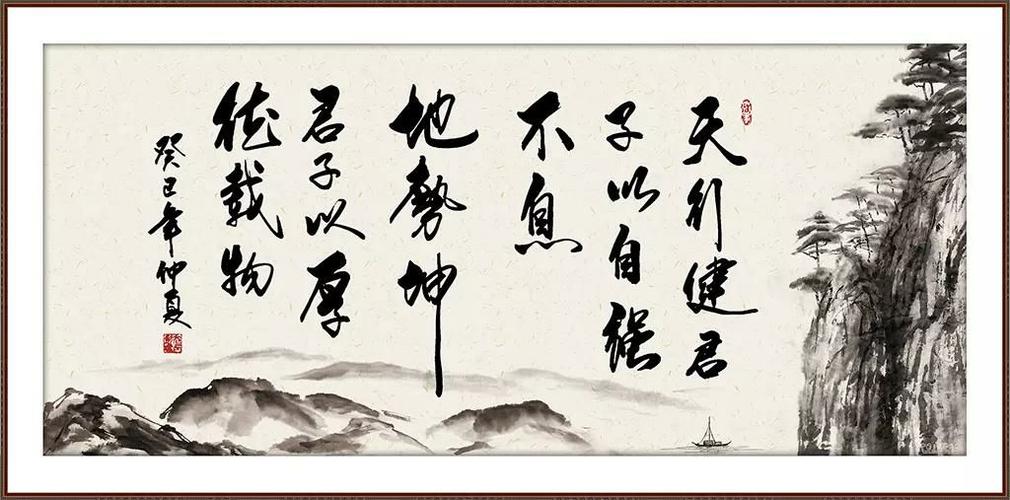 天行健君
子以自強
不息
地勢坤
君子以厚
德載物
癸巳年仲夏